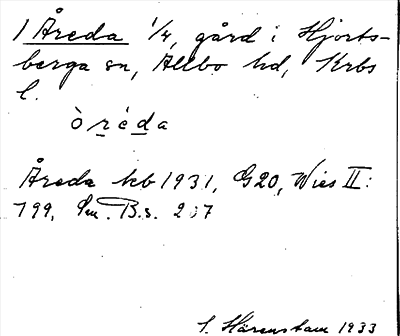 1 Åreda 1/4, gård i Hjorts-
berga sn, Allbo hd, Krbs
l.
òréda
Åreda kb 1931, G20, Wies II:
199, Sm. B.s. 207
S. Härenstam 1933